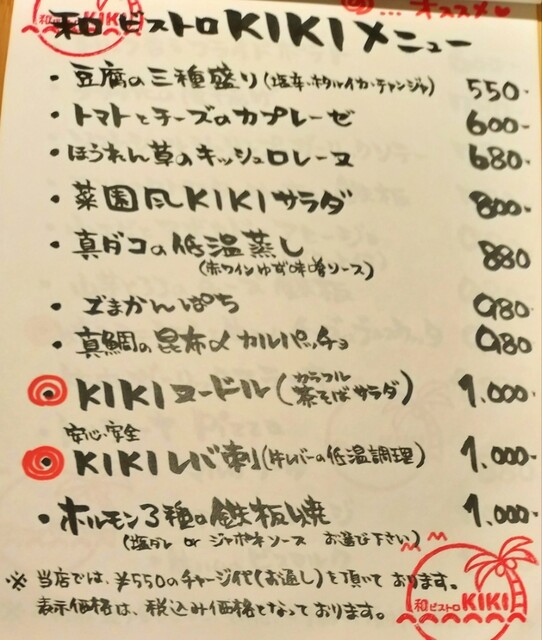 … オススメ♥
和ビストロKIKIメニュー
・豆腐の三種盛り(塩辛・ホタルイカ・チャンジャ) 550-
・トマトとチーズのカプレーゼ 600-
・ほうれん草のキッシュロレーヌ 680-
・菜園風KIKIサラダ 800-
・真ダコの低温蒸し 880
(赤ワインゆず味噌ソース)
・ごまかんぱち 980-
・真鯛の昆布〆カルパッチョ 980-
・KIKIヌードル(カラフル茶そばサラダ) 1.000-
安心・安全
・KIKIレバ刺(牛レバーの低温調理) 1.000-
・ホルモン3種の鉄板焼 1.000-
(塩ダレ or ジャポネソース お選び下さい)
※当店では、¥550のチャージ代(お通し)を頂いております。
表示価格は、税込み価格となっております。
和ビストロKIKI